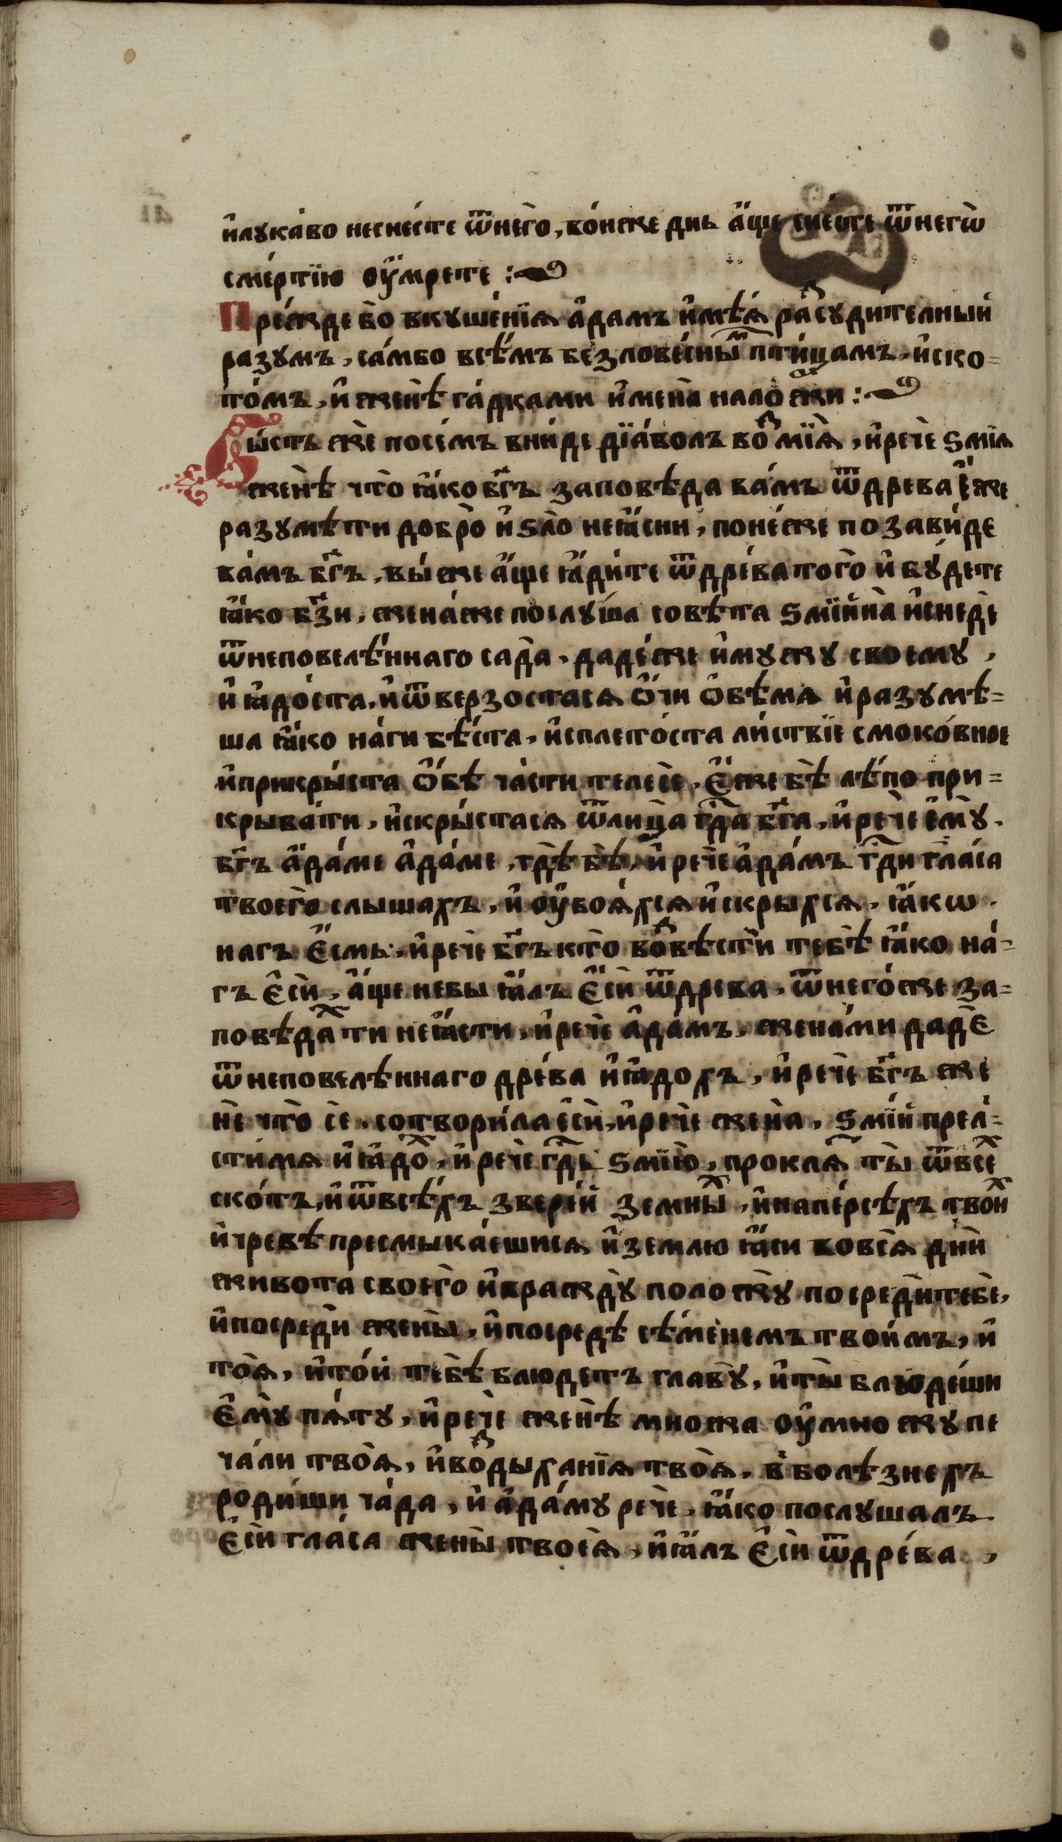 и҆лꙋка́во неснѣ́сте ѿнегѡ̀, во́ньже днь а҆́ще снѣ́сте ѿнегѡ̀
сме́ртїю ᲂу҆́мрете :
Пре́жде бо вкꙋше́нїѧ а҆да́мъ и҆мѣ́ѧ раⷥсꙋди́телный
разꙋмъ, са́мбо всѣ́мъ безлове́сныⷨ пти́цамъ, и҆ско=
то́мъ, и҆ женѣ̀ га́дками и҆мена̀ нало́жи :
Бы́сть же посе́мъ вни́де дїа́волъ воⷥмїѧ̀, и҆речѐ ѕмїѧ
женѣ̀ что̀ ꙗ҆́ко бг҃ъ заповѣ́да ва́мъ ѿдре́ва є҆́же
разꙋмѣ́ти добро̀ и҆ѕло̀ неꙗ҆́сни, поне́же по зави́де
ва́мъ бг҃ъ, вы́же а҆́ще ꙗ҆ди́те ѿдре́ва того̀ и҆ бꙋ́дете
ꙗ҆́ко бз҃и, жена́же послꙋ́ша совѣ́та ѕмїи́на и҆снедѐ
ѿнеповелѣ́ннаго сада̀, даде́же и҆мꙋжꙋ своемꙋ̀,
и҆ ꙗ҆до́ста, и҆ѿверзостасѧ ѻ҆́чи ѻ҆бѣ́мѧ и҆разꙋмѣ́=
ша ꙗ҆́ко на́ги бѣ́ста, и҆сплето́ста ли́ствїе смоко́вное
и҆прикры́ста ѻ҆́бѣ ча́сти телесѐ, є҆́же бѣ̀ лѣ́по при=
крыва́ти, и҆скры́стасѧ ѿлица̀ гдⷭ҇а бг҃а, и҆речѐ є҆мꙋ̀.
бг҃ъ а҆да́ме а҆да́ме, гдѣ̀ бѣ̀, и҆ речѐ а҆да́мъ гдⷭ҇и гла́са
твоего̀ слышахъ, и҆ ᲂу҆боѧ́хсѧ и҆скры́хсѧ, ꙗ҆́кѡ
нагъ є҆́смь. и҆речѐ бг҃ъ кто̀ воⷥвѣстѝ тебѣ̀ ꙗ҆́ко на́=
гъ є҆сѝ, а҆́ще небы ꙗ҆́лъ є҆сѝ ѿдре́ва, ѿнего́же за=
повѣ́даⷯ ти неꙗ҆́сти, и҆речѐ а҆да́мъ, жена́ми дадѐ
ѿнеповелѣ́ннаго дре́ва и҆ꙗ҆до́хъ, и҆ речѐ бг҃ъ же
нѐ что̀ сѐ, сотвори́ла є҆сѝ, и҆речѐ жена̀, ѕмі́й прел=
сти́мѧ и҆ ꙗ҆до́ⷯ, и҆ речѐ гдⷭ҇ь ѕмїю̀, проклѧⷮ ты̀ ѿвсеⷯ
ско́тъ, и҆ѿвсѣ́хъ звере́й земныⷯ, и҆напе́рсѣхъ твоиⷯ
и҆ чревѣ̀ пресмыка́ешисѧ и҆землю ꙗ҆́си вовсѧ̀ дни̑
живота своего̀ и҆враждꙋ̀ положꙋ̀ посредѝ тебѐ,
и҆посредѝ жены̀, и҆посредѣ̀ сѣ́менемъ твои́мъ, и҆
тоѧ̀, и҆то́й тебѣ̀ блюдетъ главꙋ̀, и҆ты̀ блюде́ши
є҆мꙋ̀ пѧ́тꙋ, и҆речѐ женѣ̀ множа ᲂу҆мно́жꙋ пе
ча́ли твоѧ̀, и҆воⷥдыха́нїѧ твоѧ̀, в болѣ́знехъ
роди́ши ча́да, и҆ а҆да́мꙋ речѐ, ꙗ҆́ко послꙋшалъ
є҆сѝ гла́са жены̀ твоеѧ̀, и҆ꙗ҆́лъ є҆сѝ ѿдре́ва,